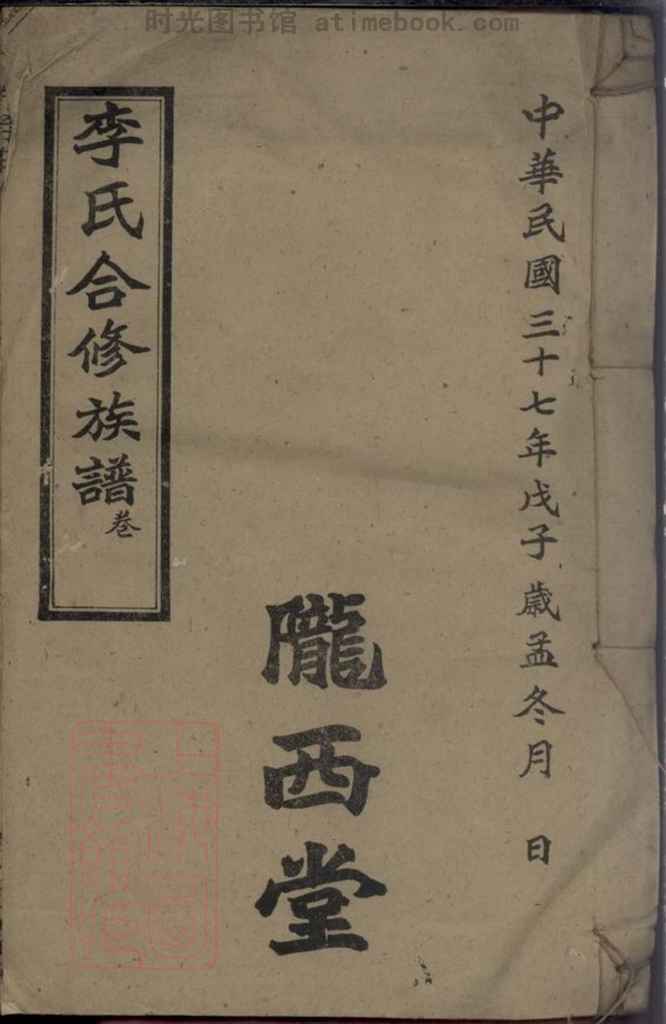 时光图书馆 atimebook.com
中華民國三十七年戊子歲孟冬月 日
隴西堂
李氏合修族譜卷